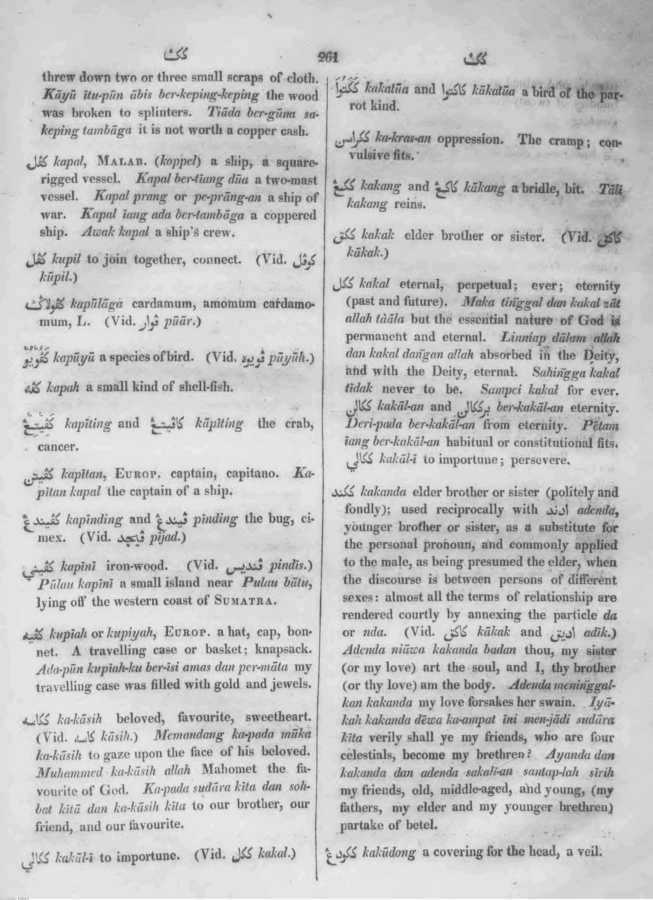 ککت 261 ککت
threw down two or three small scraps of cloth.
Kāyū ītu-pūn ābis ber-keping-keping the wood
was broken to splinters. Tiāda ber-gūna sa-
keping tambāga it is not worth a copper cash.
کڤل kapal, MALAB. (kappel) a ship, a square-
rigged vessel. Kapal ber-tīang dūa a two-mast
vessel. Kapal prang or pe-prāng-an a ship of
war. Kapal īang ada ber-tambāga a coppered
ship. Awak kapal a ship's crew.
کڤل kupil to join together, connect. (Vid. کوڤل
kūpil.)
کڤولاݢ kapūlāga cardamum, amomum cardamo-
mum, L. (Vid. ڤوار pūār.)
کڤويو kapūyū a species of bird. (Vid. ڤويوه pūyūh.)
کڤه kapah a small kind of shell-fish.
کڤيتيڠ kapīting and کاڤيتيڠ kāpīting the crab,
cancer.
کڤيتن kapītan, EUROP. captain, capitano. Ka-
pītan kapal the captain of a ship.
کڤيندڠ kapīnding and ڤيندڠ pīnding the bug, ci-
mex. (Vid. ڤيجد pījad.)
کڤيني kapīnī iron-wood. (Vid. ڤنديس pindīs.)
Pūlau kapīnī a small island near Pulau bātu,
lying off the western coast of SUMATRA.
کڤيه kupīah or kupīyah, EUROP. a hat, cap, bon-
net. A travelling case or basket; knapsack.
Ada-pūn kupīah-ku ber-īsi amas dan per-māta my
travelling case was filled with gold and jewels.
ککاسه ka-kāsih beloved, favourite, sweetheart.
(Vid. کاسه kāsih.) Memandang ka-pada mūka
ka-kāsih to gaze upon the face of his beloved.
Muhammed ka-kāsih allah Mahomet the fa-
vourite of God. Ka-pada sudāra kīta dan soh-
bat kitā dan ka-kāsih kīta to our brother, our
friend, and our favourite.
ککالي kakāl-ī to importune. (Vid. ککل kakal.)
ککتوا kakatūa and کاکتوا kākatūa a bird of the par-
rot kind.
ککراسن ka-kras-an oppression. The cramp; con-
vulsive fits.
ککڠ kakang and کاکڠ kākang a bridle, bit. Tāli
kakang reins.
ککق kakak elder brother or sister. (Vid. کاکق
kākak.)
ککل kakal eternal, perpetual; ever; eternity
(past and future). Maka tīnggal dan kakal zāt
allah tāāla but the essential nature of God is
permanent and eternal. Linniap dālam allah
dan kakal dangan allah absorbed in the Deity,
and with the Deity, eternal. Sahingga kakal
tīdak never to be. Sampei kakal for ever.
ککالن kakāl-an and برککالن ber-kakāl-an eternity.
Deri-pada ber-kakāl-an from eternity. Pētam
īang ber-kakāl-an habitual or constitutional fits.
ککالي kakāl-ī to importune; persevere.
ککند kakanda elder brother or sister (politely and
fondly); used reciprocally with ادند adenda,
younger brother or sister, as a substitute for
the personal pronoun, and commonly applied
to the male, as being presumed the elder, when
the discourse is between persons of different
sexes: almost all the terms of relationship are
rendered courtly by annexing the particle da
or nda. (Vid. کاکق kākak and اديق adīk.)
Adenda nīāwa kakanda badan thou, my sister
(or my love) art the soul, and I, thy brother
(or thy love) am the body. Adenda meninggal-
kan kakanda my love forsakes her swain. Iyā-
kah kakanda dēwa ka-ampat īni men-jādi sudāra
kīta verily shall ye my friends, who are four
celestials, become my brethren? Ayanda dan
kakanda dan adenda sakalī-an santap-lah sīrih
my friends, old, middle-aged, and young, (my
fathers, my elder and my younger brethren)
partake of betel.
ککودڠ kakūdong a covering for the head, a veil.